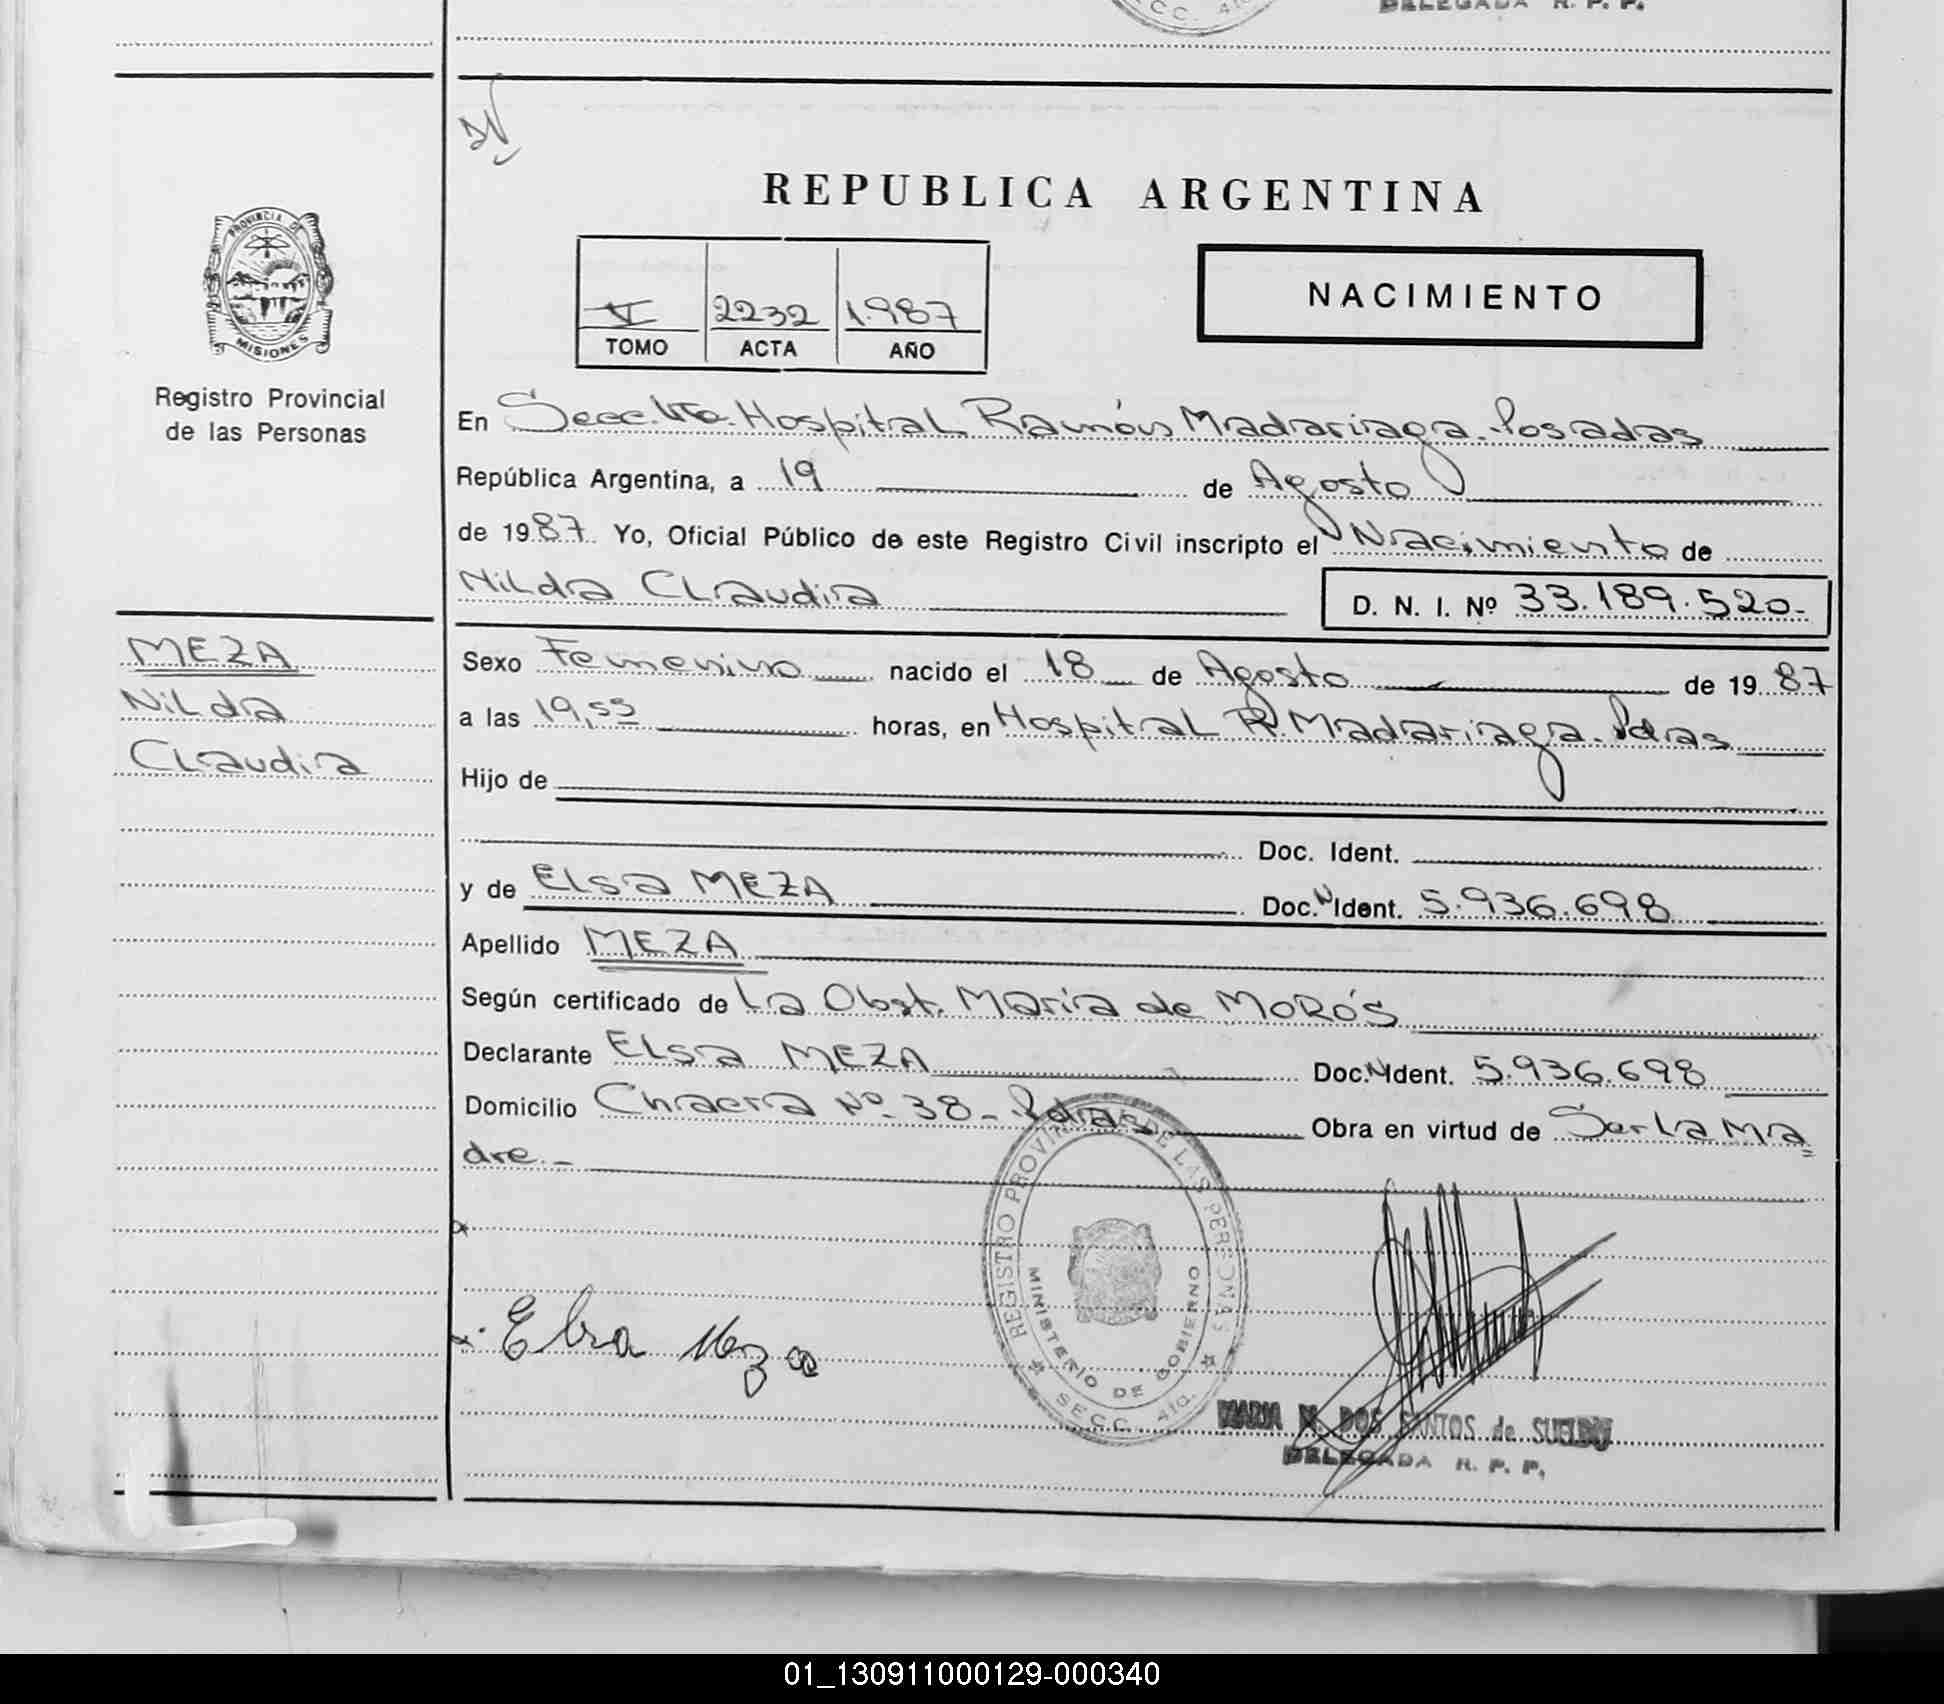 DELEGADA R. P. P.
REPUBLICA ARGENTINA
V 2232 1.987
TOMO ACTA AÑO
NACIMIENTO
PROVINCIA DE
MISIONES
Registro Provincial
de las Personas
En Secc. 4ta. Hospital Ramón Madariaga. Posadas
República Argentina, a 19 de Agosto
de 1987. Yo, Oficial Público de este Registro Civil inscripto el Nacimiento de
Nilda Claudia D. N. I. Nº 33.189.520.-
MEZA
Nilda
Claudia
Sexo Femenino nacido el 18 de Agosto de 1987
a las 19,55 horas, en Hospital R. Madariaga. Pdas
Hijo de
Doc. Ident.
y de Elsa MEZA Doc. N Ident. 5.936.698
Apellido MEZA
Según certificado de La Obst. María de MOROS
Declarante Elsa MEZA Doc. N Ident. 5.936.698
Domicilio Chacra Nº 38- Pdas Obra en virtud de Ser la Ma
dre.-
Elsa Meza
REGISTRO PROVINCIAL DE LAS PERSONAS
MINISTERIO DE GOBIERNO
SECC. 41a.
MARIA N. DOS SANTOS de SUELDO
DELEGADA R. P. P.
01_130911000129-000340